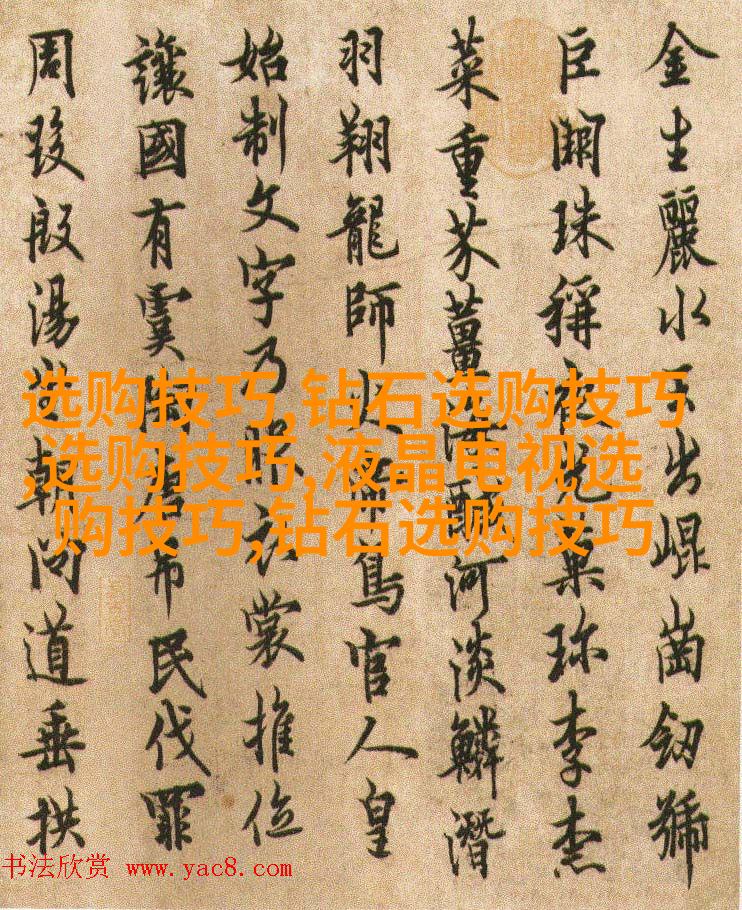 金生麗水玉出崐崗劒號
巨闕珠稱夜光果珍李柰
菜重芥薑海醎河淡鱗潛
羽翔龍師火帝鳥官人皇
始制文字乃服衣裳推位
讓國有虞陶唐弔民伐罪
周發殷湯坐朝問道垂拱
选购技巧,钻石选购技巧
,选购技巧,液晶电视选
购技巧,钻石选购技巧
书法欣赏 www.yac8.com